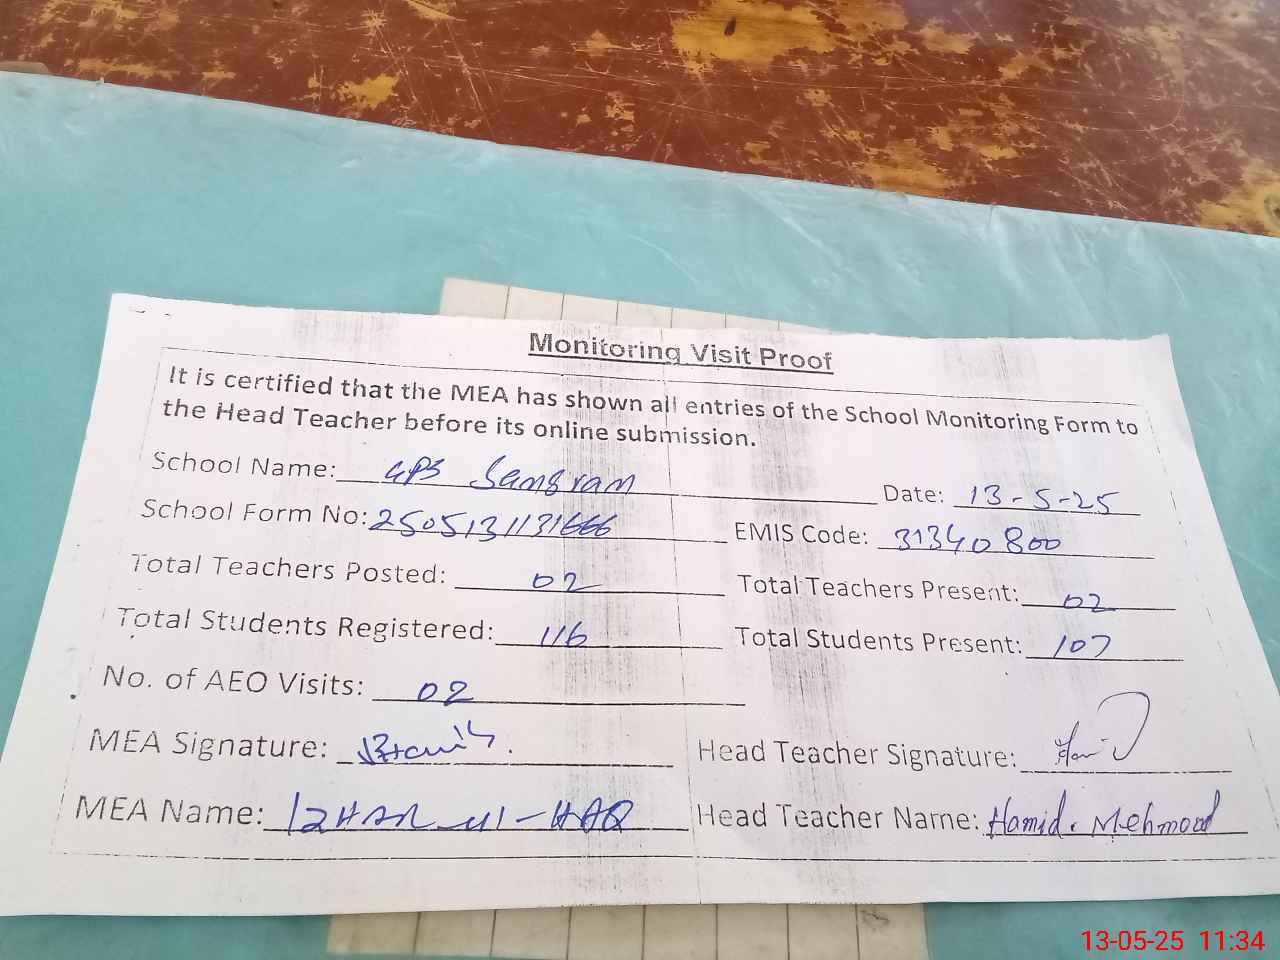 Monitoring Visit Proof
It is certified that the MEA has shown all entries of the School Monitoring Form to
the Head Teacher before its online submission.
School Name: GPS Sangram Date: 13-5-25
School Form No: 2505131131666 EMIS Code: 31340800
Total Teachers Posted: 02 Total Teachers Present: 02
Total Students Registered: 116 Total Students Present: 107
No. of AEO Visits: 02
MEA Signature: Head Teacher Signature:
MEA Name: IZHAR-ul-HAQ Head Teacher Name: Hamid. Mehmood
13-05-25 11:34